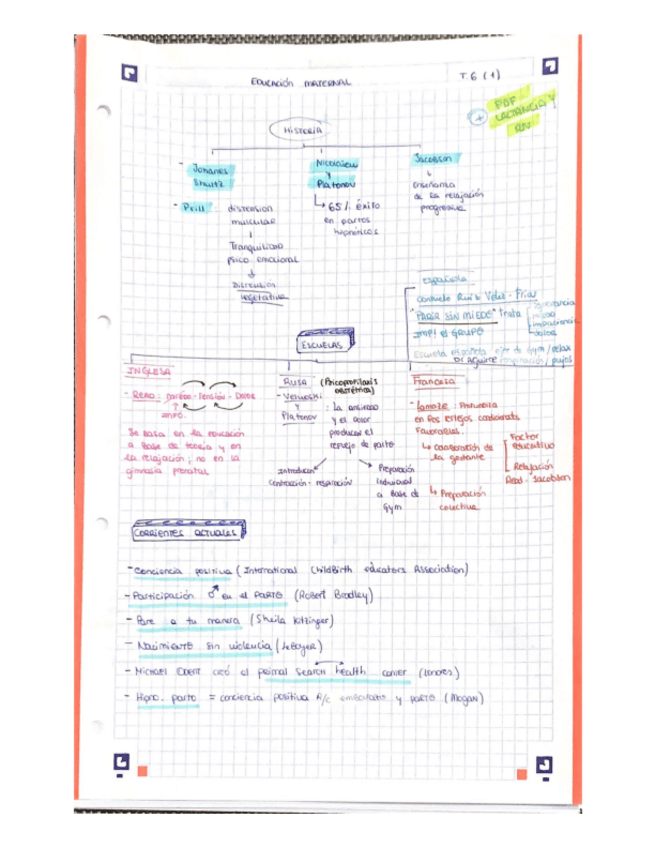 EDUCACIÓN MATERNAL
T.6 (1)
PDF
LACTANCIA Y
RN
HISTORIA
- Johanes
Shultz
- Prill: distension
muscular
Tranquilidad
psico emocional
Distension
vegetativa
Nicolaiew
y
Platonov
65% éxito
en partos
hipnóticos
Jacobson
Enseñanza
de la relajación
progresiva
española
Consuelo Ruiz Velez-Frias
"PARIR SIN MIEDO" trata
ignorancia
miedo
impaciencia
dolor
IMP! el GRUPO
Escuela española ejer de Gym/relax
respiración/pujos
ESCUELAS
INGLESA
- READ: pareo - Tensión - Dolor
INFO.
Se basa en la educación
a base de teoría y en
la relajación; no en la
gimnasia prenatal
RUSA (Psicoprofilaxis
obstétrica)
- Velvoski
y
Platonov
: La ansiedad
y el dolor
producen el
reflejo de parto
Introducen
Contracción - respiración
Preparación
Individual
a base de
Gym
Francesa
- Lamaze: Profundiza
en los reflejos condicionats
favorables.
Colaboración de
la gestante
Factor
educativo
Relajación
Read - Jacobson
Preparación
colectiva
CORRIENTES ACTUALES
- Conciencia positiva (International ChildBirth educators Association)
- Participación ♂ en el PARTO (Robert Bradley)
- Pare a tu manera (Sheila Kitzinger)
- Nacimiento sin violencia (Leboyer)
- Michael ODENT creó el primal search health center (Londres)
- Hipno. parto = conciencia positiva R/c embarazo y parto (Mogan)